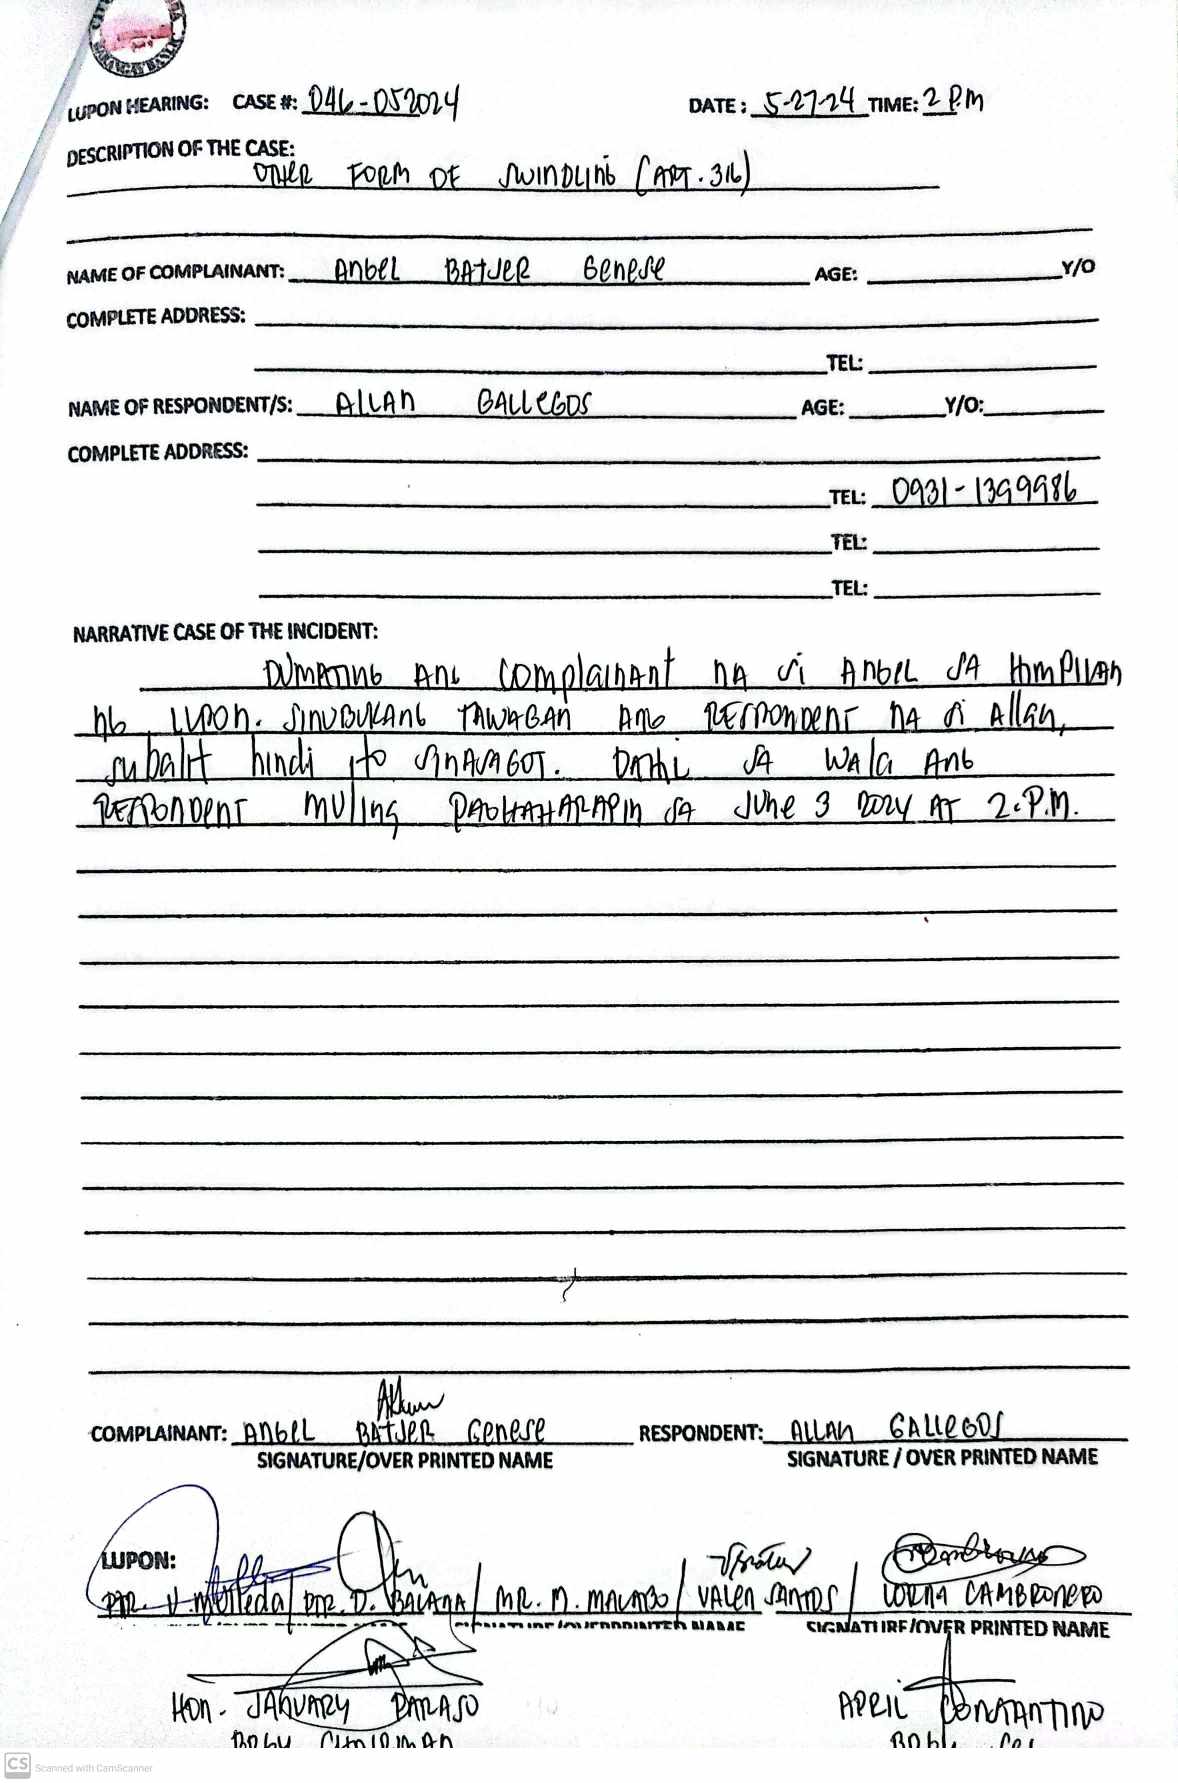 LUPON HEARING: CASE #: 046-052024 DATE: 5-27-24 TIME: 2 P.M
DESCRIPTION OF THE CASE:
OTHER FORM OF SWINDLING (ART. 316)
NAME OF COMPLAINANT: ANGEL BATJER GENESE AGE: Y/O
COMPLETE ADDRESS:
TEL:
NAME OF RESPONDENT/S: ALLAN GALLEGOS AGE: Y/O:
COMPLETE ADDRESS:
TEL: 0931-1399986
TEL:
TEL:
NARRATIVE CASE OF THE INCIDENT:
DUMATING ANG COMPLAINANT NA SI ANGEL SA HIMPILAN
NG LUPON. SINUBUKANG TAWAGAN ANG RESPONDENT NA SI ALLAN,
SUBALIT HINDI ITO SINASAGOT. DAHIL SA WALA ANG
RESPONDENT MULING PAGHAHARAPIN SA JUNE 3 2024 AT 2:P.M.
COMPLAINANT: ANGEL BATJER GENESE RESPONDENT: ALLAN GALLEGOS
SIGNATURE/OVER PRINTED NAME SIGNATURE / OVER PRINTED NAME
LUPON:
PTR. PTR. D. / MR. M. / VALEN SANTOS / LORNA CAMBRONERO
SIGNATURE/OVERPRINTED NAME SIGNATURE/OVER PRINTED NAME
HON. JANUARY PARASO APRIL CONSTANTINO
BRGY CHAIRMAN BRGY.
CS Scanned with CamScanner